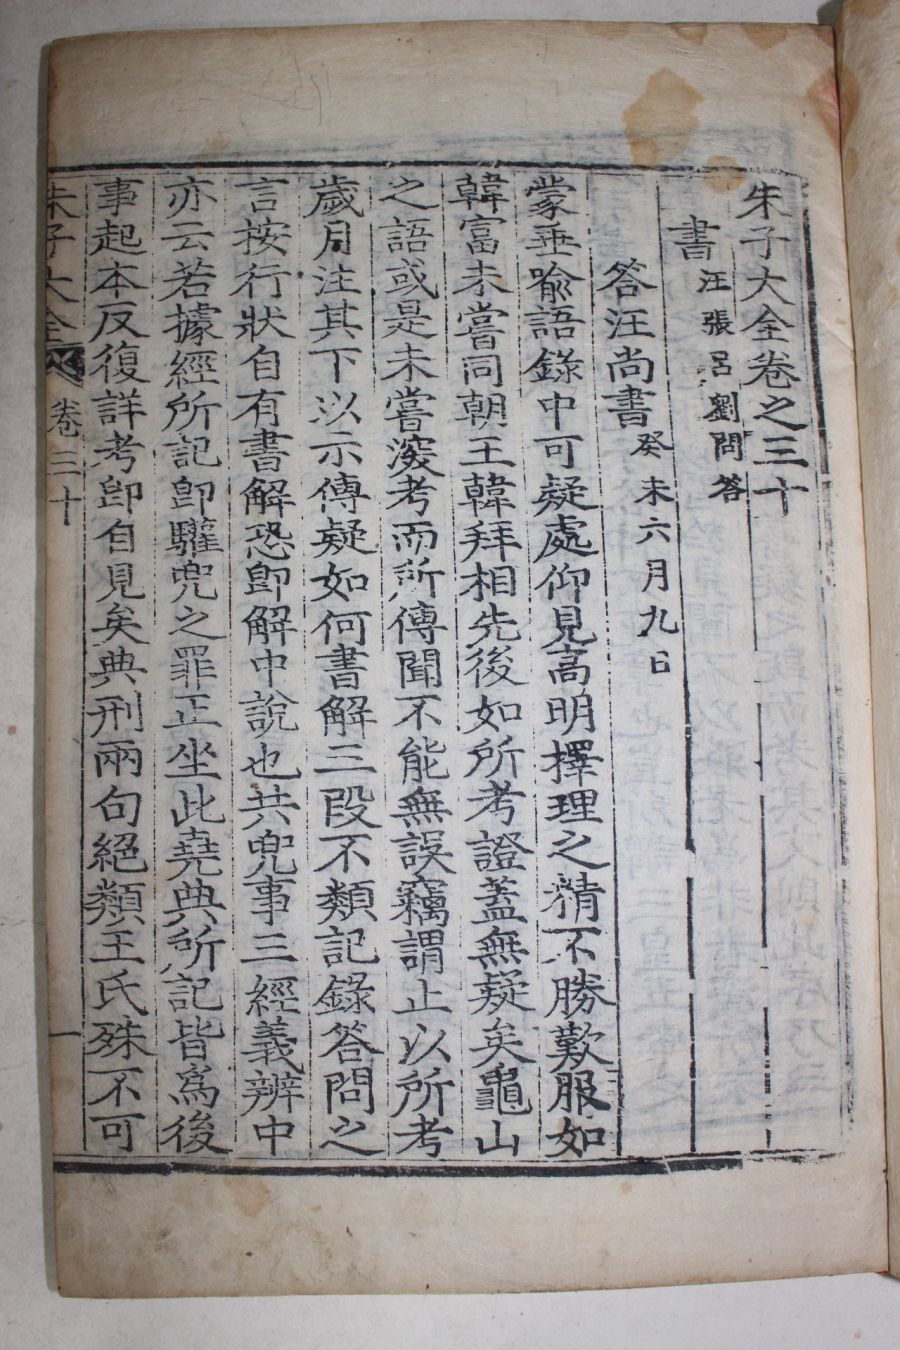 朱子大全卷之三十
書 汪張呂劉問答
答汪尚書 癸未六月九日
蒙垂喩語錄中可疑處仰見高明擇理之精不勝歎服如
韓富未嘗同朝王韓拜相先後如所考證蓋無疑矣龜山
之語或是未嘗深考而所傳聞不能無誤竊謂止以所考
歲月注其下以示傳疑如何書解三段不類記錄答問之
言按行狀自有書解恐卽解中說也共兜事三經義辨中
亦云若據經所記卽驩兜之罪正坐此堯典所記皆爲後
事起本反復詳考卽自見矣典刑兩句絕類王氏殊不可
朱子大全 卷三十 一